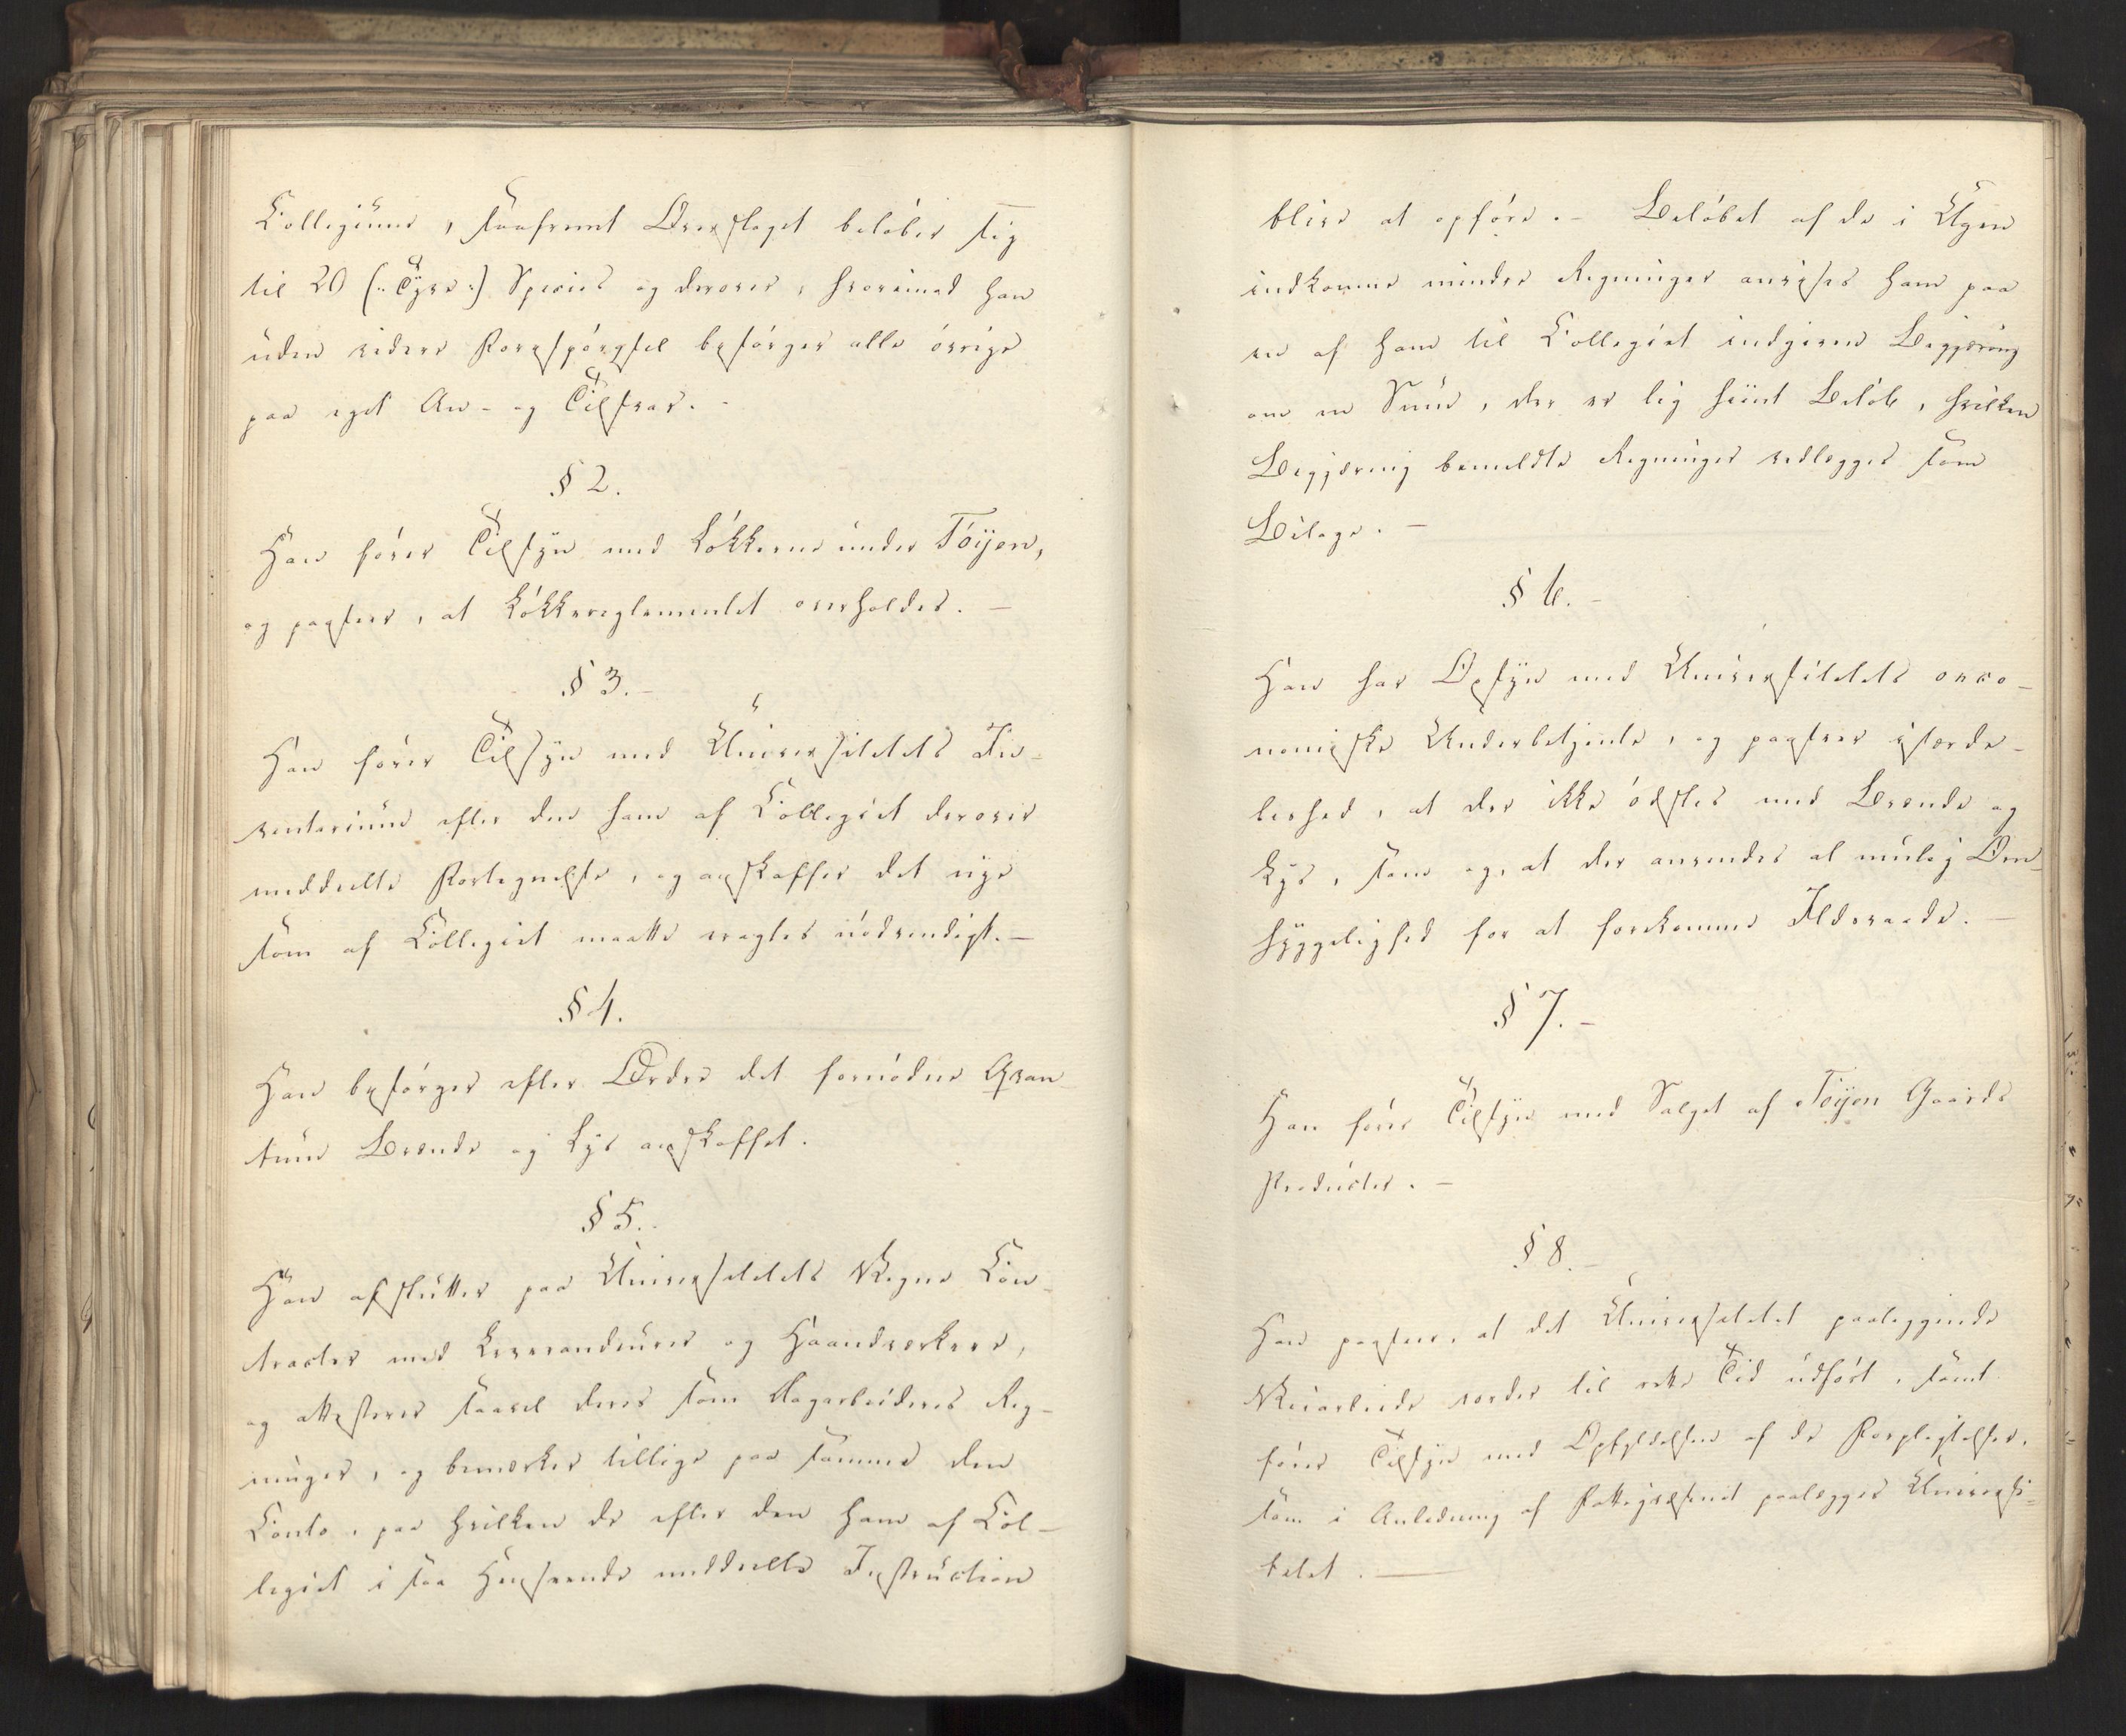 Collegium, saafremt Overslaget beløber sig
til 20 (: Tyve :) Species og derover, hvorimod han
uden videre Forespørgsel besørger alle øvrige
paa eget An- og Tilsvar. -
§ 2.
Han fører Tilsyn med Løkkerne under Tøÿen,
og paaseer, at Løkkereglementet overholdes. -
§ 3. -
Han fører Tilsyn med Universitetets In-
ventarium efter den ham af Collegiet derover
meddeelte Fortegnelse, og anskaffer det nye
som af Collegiet maatte eragtes nødvendigt. -
§ 4.
Han besørger efter Ordre det fornødne Qvan
tum Brænde og Lys anskaffet.
§ 5.
Han afslutter paa Universitetets Vegne Con-
tracter med Leverandeurer og Haandværkere,
og attesterer saavel deres som Dagarbeideres Reg-
ninger, og bemærker tillige paa samme den
Conto, paa hvilken de efter den ham af Col-
legiet i saa Henseende meddeelte Instruction
blive at opføre. - Beløbet af de i Ugen
indkomne mindre Regninger anvises ham paa
en af ham til Collegiet indgiven Begjæring
om en Sum, der er lig hiint Beløb, hvilken
Begjæring bemeldte Regninger vedlægges som
Bilage. -
§ 6. -
Han har Opsyn med Universitetets oeco-
nomiske Underbetjente, og paaseer isærde-
leshed, at der ikke ødsles med Brænde og
Lys, som og, at der anvendes al mulig Om-
hyggelighed for at forekomme Ildsvaade. -
§ 7. -
Han fører Tilsyn med Salget af Tøÿen Gaards
Producter. -
§ 8. -
Han paaseer, at det Universitetet paaliggende
Veiarbeide vorder til rette Tid udført, samt
fører Tilsyn med Opfyldelsen af de Forpligtelser,
som i Anledning af Fattigvæsenet paalægges Universi-
tetet. -